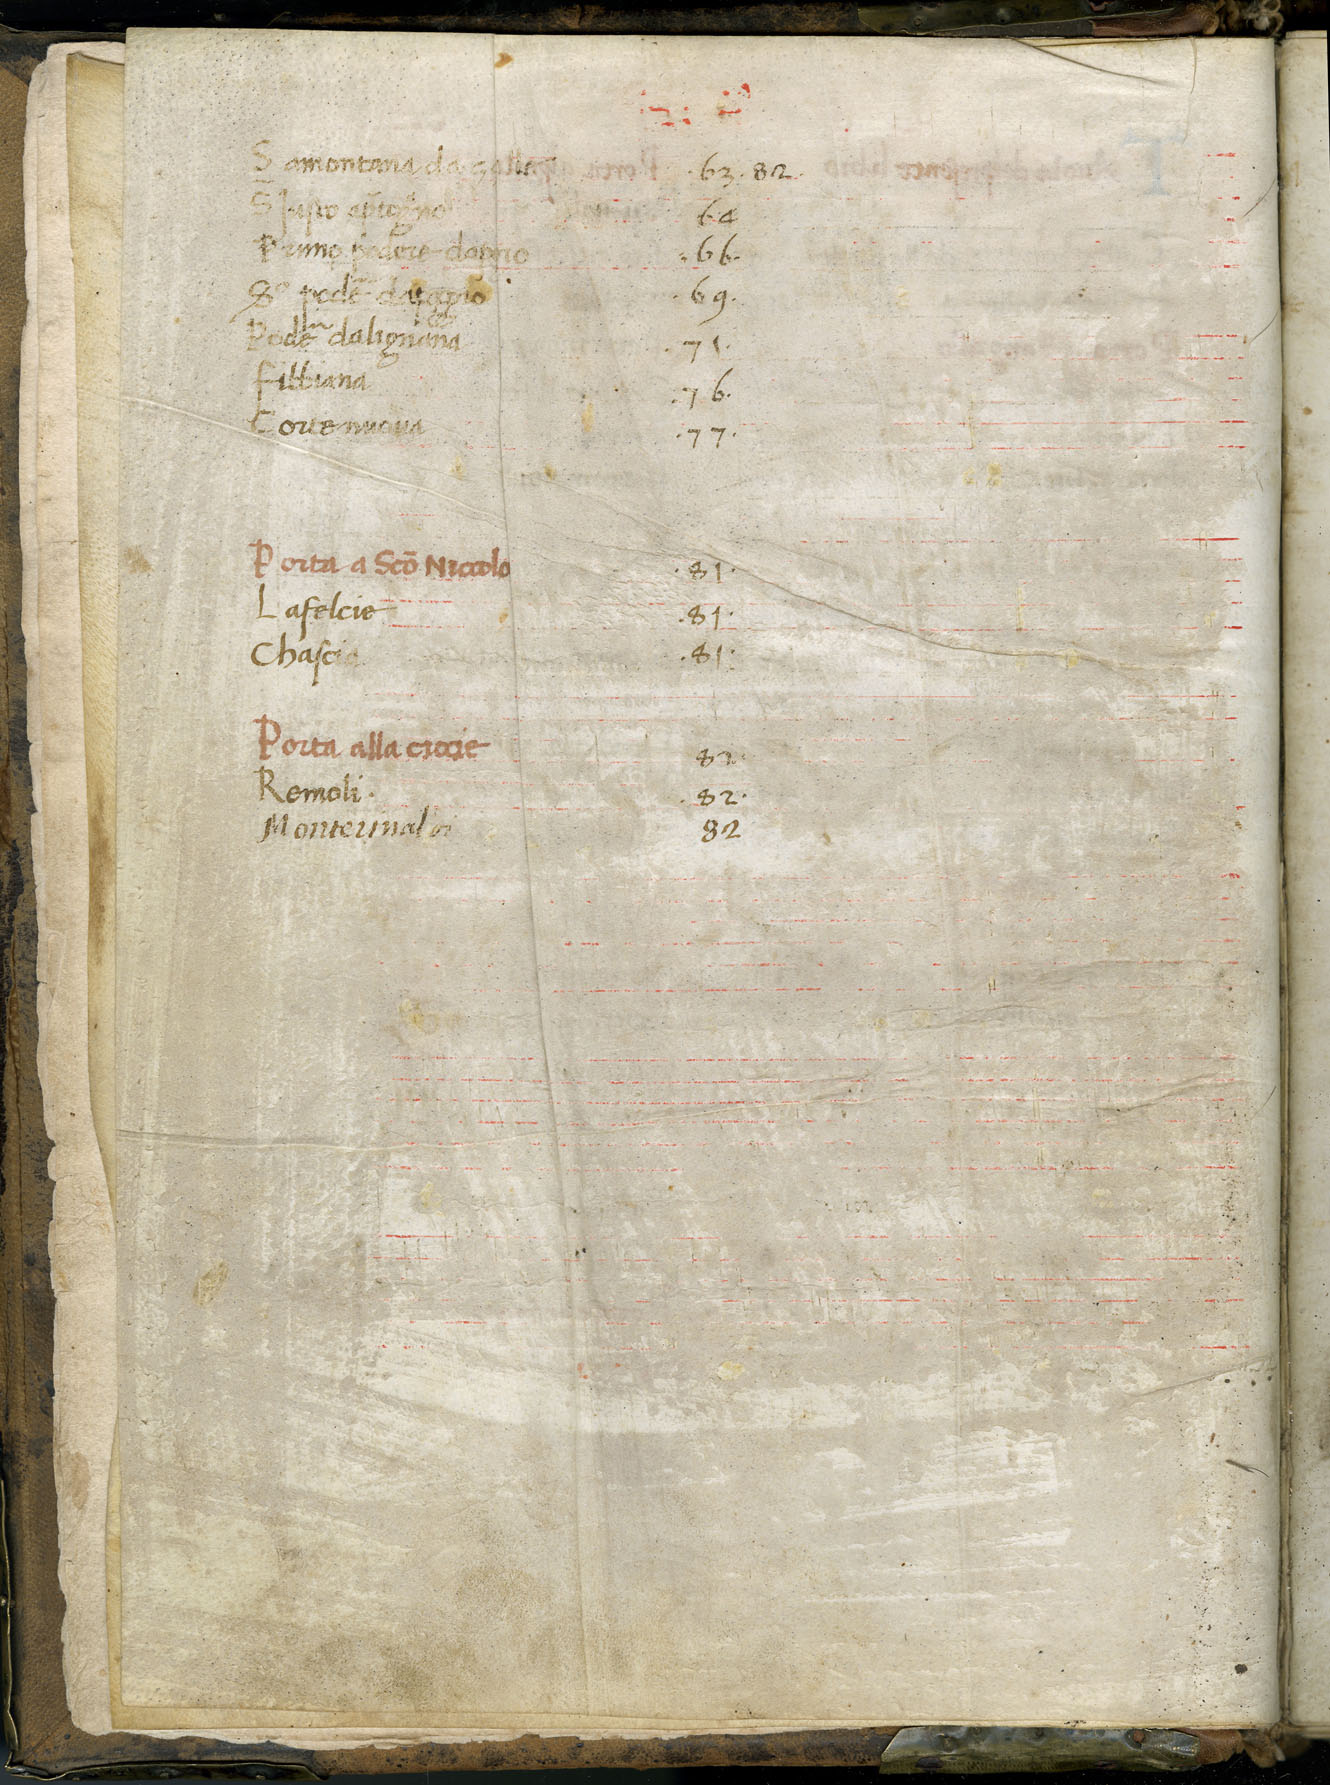 Samontana da galla 63. 82.
S Justo 64
Primo podere 66.
So podē 69.
Podē dalignana 71.
fibbiana 76.
Cortenuova .77.
Porta a Scō Niccolo .81.
Lafelcie .81.
Chascia .81.
Porta alla crocie 82.
Remoli. .82.
Monterinaldi 82